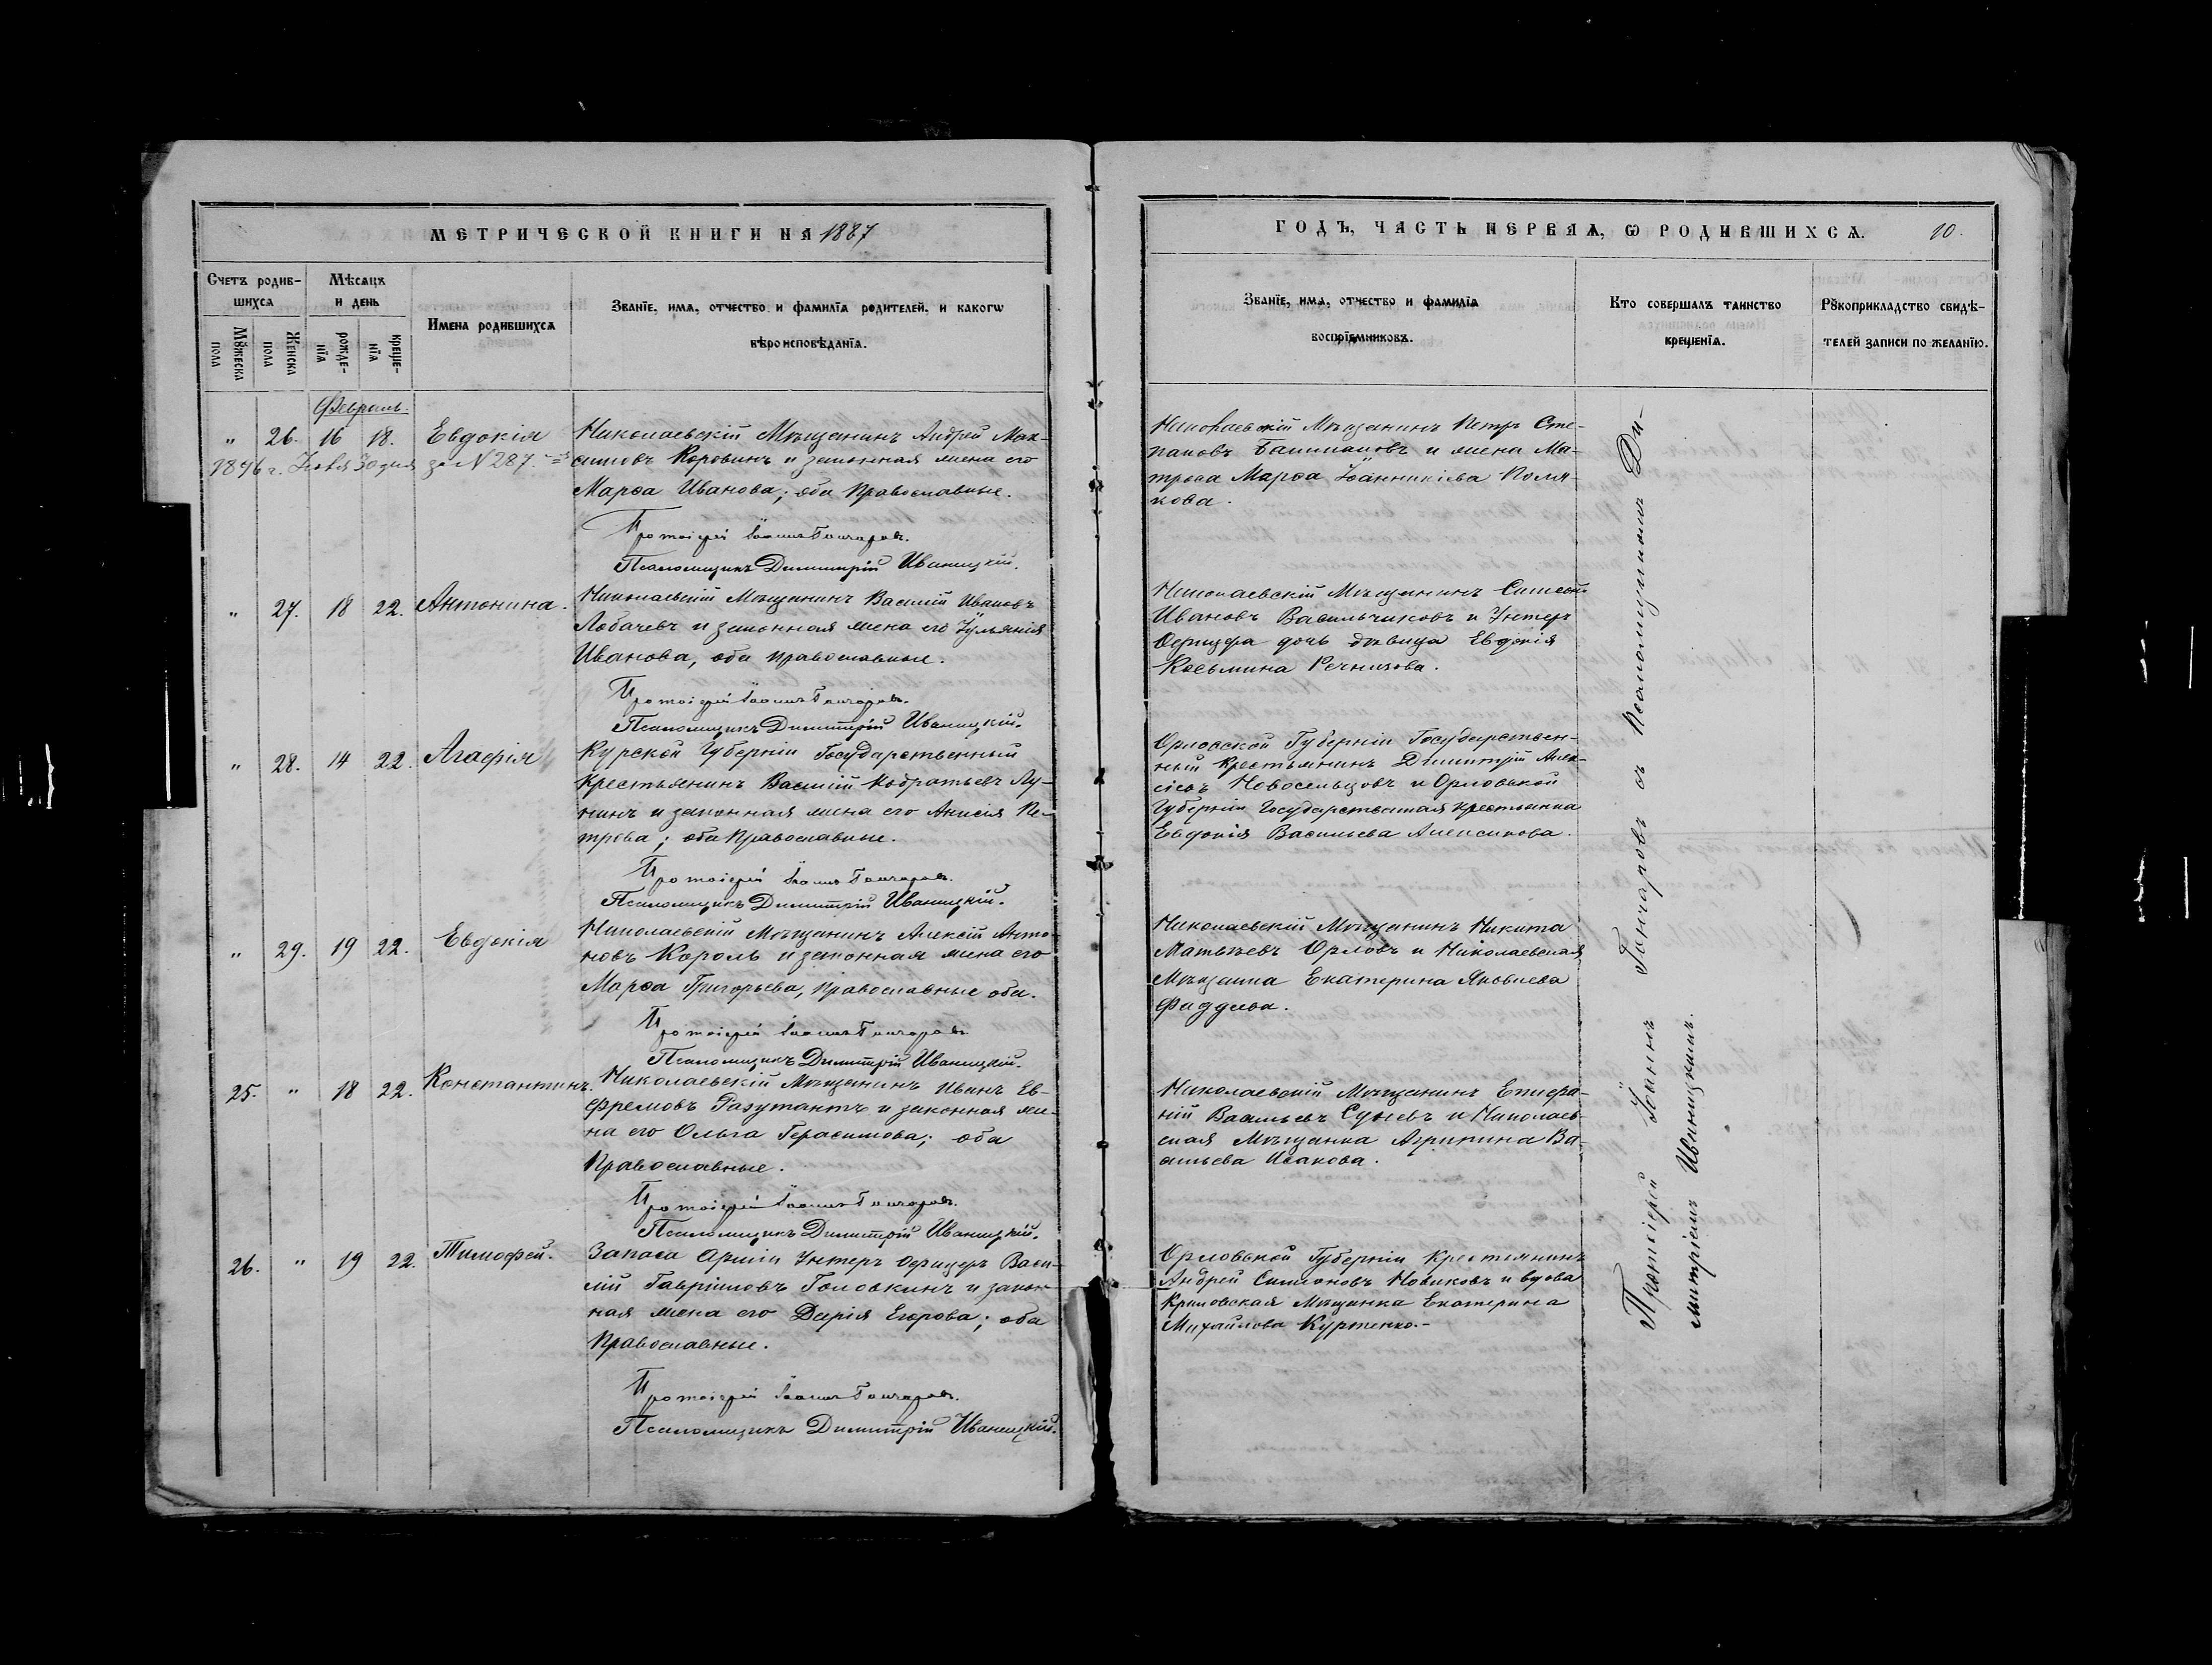 МЕТРИЧЕСКОЙ КНИГИ НА 1887
Счетъ родив-
шихся
Мѣсяцъ
и день
Имена родившихся
Званїе, имя, отчество и фамилїя родителей, и какогѡ
вѣроисповѣданїя.
Мꙋжеска
пола
Женска
пола
рожде-
нїя
креще-
нїя
Февраль.
" 26. 16 18. Евдокія
1896 г. 30 дня за N 287.
Николаевскій Мѣщанинъ Андрей Мак-
симовъ Коровинъ и законная жена его
Марѳа Иванова; оба Православные.
Протоіерей Іоаннъ Гончаровъ.
Псаломщикъ Димитрій Иваницкій.
" 27. 18 22. Антонина.
Николаевскій Мѣщанинъ Василій Ивановъ
Лобачевъ и законная жена его Іульянія
Иванова, оба православные.
Протоіерей Іоаннъ Гончаровъ.
Псаломщикъ Димитрій Иваницкій.
" 28. 14 22. Агафія
Курской Губерніи Государственный
Крестьянинъ Василій Кодратьевъ Лу-
нинъ и законная жена его Анисія Пе-
трова; оба Православные.
Протоіерей Іоаннъ Гончаровъ.
Псаломщикъ Димитрій Иваницкій.
" 29. 19 22. Евдокія
Николаевскій Мѣщанинъ Алексій Анто-
новъ Король и законная жена его
Марѳа Григорьева, Православные оба.
Протоіерей Іоаннъ Гончаровъ
Псаломщикъ Димитрій Иваницкій.
25. " 18 22. Константинъ.
Николаевскій Мѣщанинъ Иванъ Ев-
фремовъ Разутантъ и законная же-
на его Ольга Герасимова; оба
Православные.
Протоіерей Іоаннъ Гончаровъ.
Псаломщикъ Димитрій Иваницкій.
26. " 19 22. Тимофей.
Запаса Арміи Унтеръ Офицеръ Васи-
лій Гавріиловъ Головкинъ и закон-
ная жена его Дарія Егорова; оба
Православные.
Протоіерей Іоаннъ Гончаровъ.
Псаломщикъ Димитрій Иваницкій.
ГОДЪ, ЧАСТЬ ПЕРВАЯ, Ѡ РОДИВШИХСЯ. 10.
Званїе, имя, отчество и фамилїя
воспрїемниковъ.
Кто совершалъ таинство
крещенїя.
Рꙋкоприкладство свидѣ-
телей записи по желанїю.
Николаевскій Мѣщанинъ Петръ Сте-
пановъ Башмановъ и жена Ма-
троса Марѳа Іоанникіева Поля-
кова.
Николаевскій Мѣщанинъ Симеонъ
Ивановъ Васильчиковъ и Унтеръ
Офицера дочь дѣвица Евдокія
Косьмина Речникова.
Орловской Губерніи Государствен-
ный Крестьянинъ Димитрій Алек-
сѣевъ Новосельцовъ и Орловской
Губерніи Государственная Крестьянка
Евдокія Васильева Алексикова.
Николаевскій Мѣщанинъ Никита
Матвѣевъ Орловъ и Николаевская
Мѣщанка Екатерина Яковлева
Фаддеева.
Николаевскій Мѣщанинъ Епифа-
ній Васильевъ Сунекъ и Николаев-
ская Мѣщанка Агрипина Ва-
сильева Исакова.
Орловской Губерніи Крестьянинъ
Андрей Симоновъ Новиковъ и вдова
Криловская Мѣщанка Екатерина
Михайлова Куртенко.-
Протоіерей Іоаннъ Гончаровъ съ Псаломщикомъ Ди-
митріемъ Иваницкимъ.